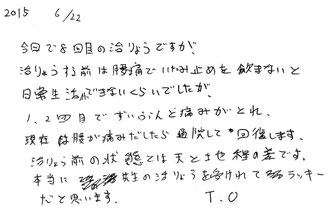 2015 6/22
今回で8回目の治りょうですが、
治りょうする前は腰痛でいたみ止めを飲まないと
日常生活ができないくらいでしたが、
1、2回目でずいぶんと痛みがとれ、
現在は腰が痛みだしたら通院して回復します。
治りょう前の状態とは天と地程の差です。
本当に先生の治りょうを受けれてラッキー
だと思います。 T.O